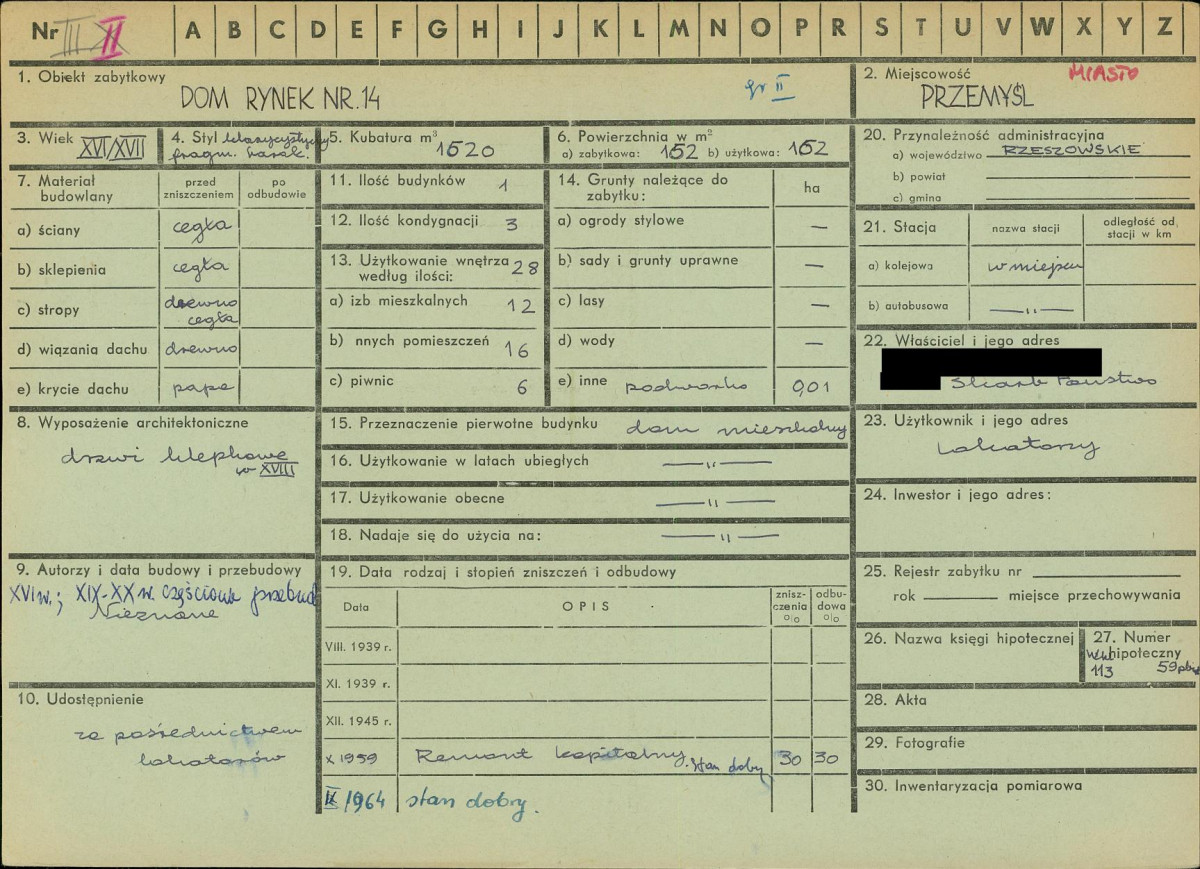 Nr III II A B C D E F G H I J K L M N O P R S T U V W X Y Z
1. Obiekt zabytkowy
DOM RYNEK NR. 14
gr II
2. Miejscowość
MIASTO
PRZEMYŚL
3. Wiek XVI/XVII
4. Styl klasycystyczny
fragm. barok.
5. Kubatura m³
1520
6. Powierzchnia w m²
a) zabytkowa: 152 b) użytkowa: 152
20. Przynależność administracyjna
a) województwo RZESZOWSKIE
b) powiat
c) gmina
7. Materiał budowlany
przed zniszczeniem
po odbudowie
a) ściany cegła
b) sklepienia cegła
c) stropy drewno
cegła
d) wiązania dachu drewno
e) krycie dachu papa
11. Ilość budynków 1
12. Ilość kondygnacji 3
13. Użytkowanie wnętrza
według ilości: 28
a) izb mieszkalnych 12
b) nnych pomieszczeń 16
c) piwnic 6
14. Grunty należące do
zabytku:
ha
a) ogrody stylowe —
b) sady i grunty uprawne —
c) lasy —
d) wody —
e) inne podwórko 0,01
21. Stacja
nazwa stacji
odległość od
stacji w km
a) kolejowa w miejscu
b) autobusowa —"—
22. Właściciel i jego adres
Skarb Państwa
8. Wyposażenie architektoniczne
drzwi klepkowe
w XVIII
15. Przeznaczenie pierwotne budynku dom mieszkalny
16. Użytkowanie w latach ubiegłych —"—
17. Użytkowanie obecne —"—
18. Nadaje się do użycia na: —"—
23. Użytkownik i jego adres
Lokatorzy
24. Inwestor i jego adres:
9. Autorzy i data budowy i przebudowy
XVI w.; XIX-XX w. częściowa przebud
Nieznane
19. Data rodzaj i stopień zniszczeń i odbudowy
Data
OPIS
znisz-
czenia
o/o
odbu-
dowa
o/o
VIII. 1939 r.
XI. 1939 r.
XII. 1945 r.
X 1959 Remont kapitalny. stan dobry 30 30
IX 1964 stan dobry.
25. Rejestr zabytku nr
rok miejsce przechowywania
26. Nazwa księgi hipotecznej
27. Numer
hipoteczny
113 59
10. Udostępnienie
za pośrednictwem
lokatorów
28. Akta
29. Fotografie
30. Inwentaryzacja pomiarowa